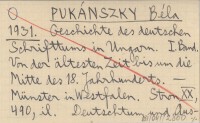 PUKÁNSZKY Béla
1931. Geschichte des deutschen
Schrifttums in Ungarn. I. Band.
Von der ältesten Zeit bis um die
Mitte des 18. Jahrhunderts. —
Münster in Westfalen.
XX,
490, il. Deutschtum und Aus-